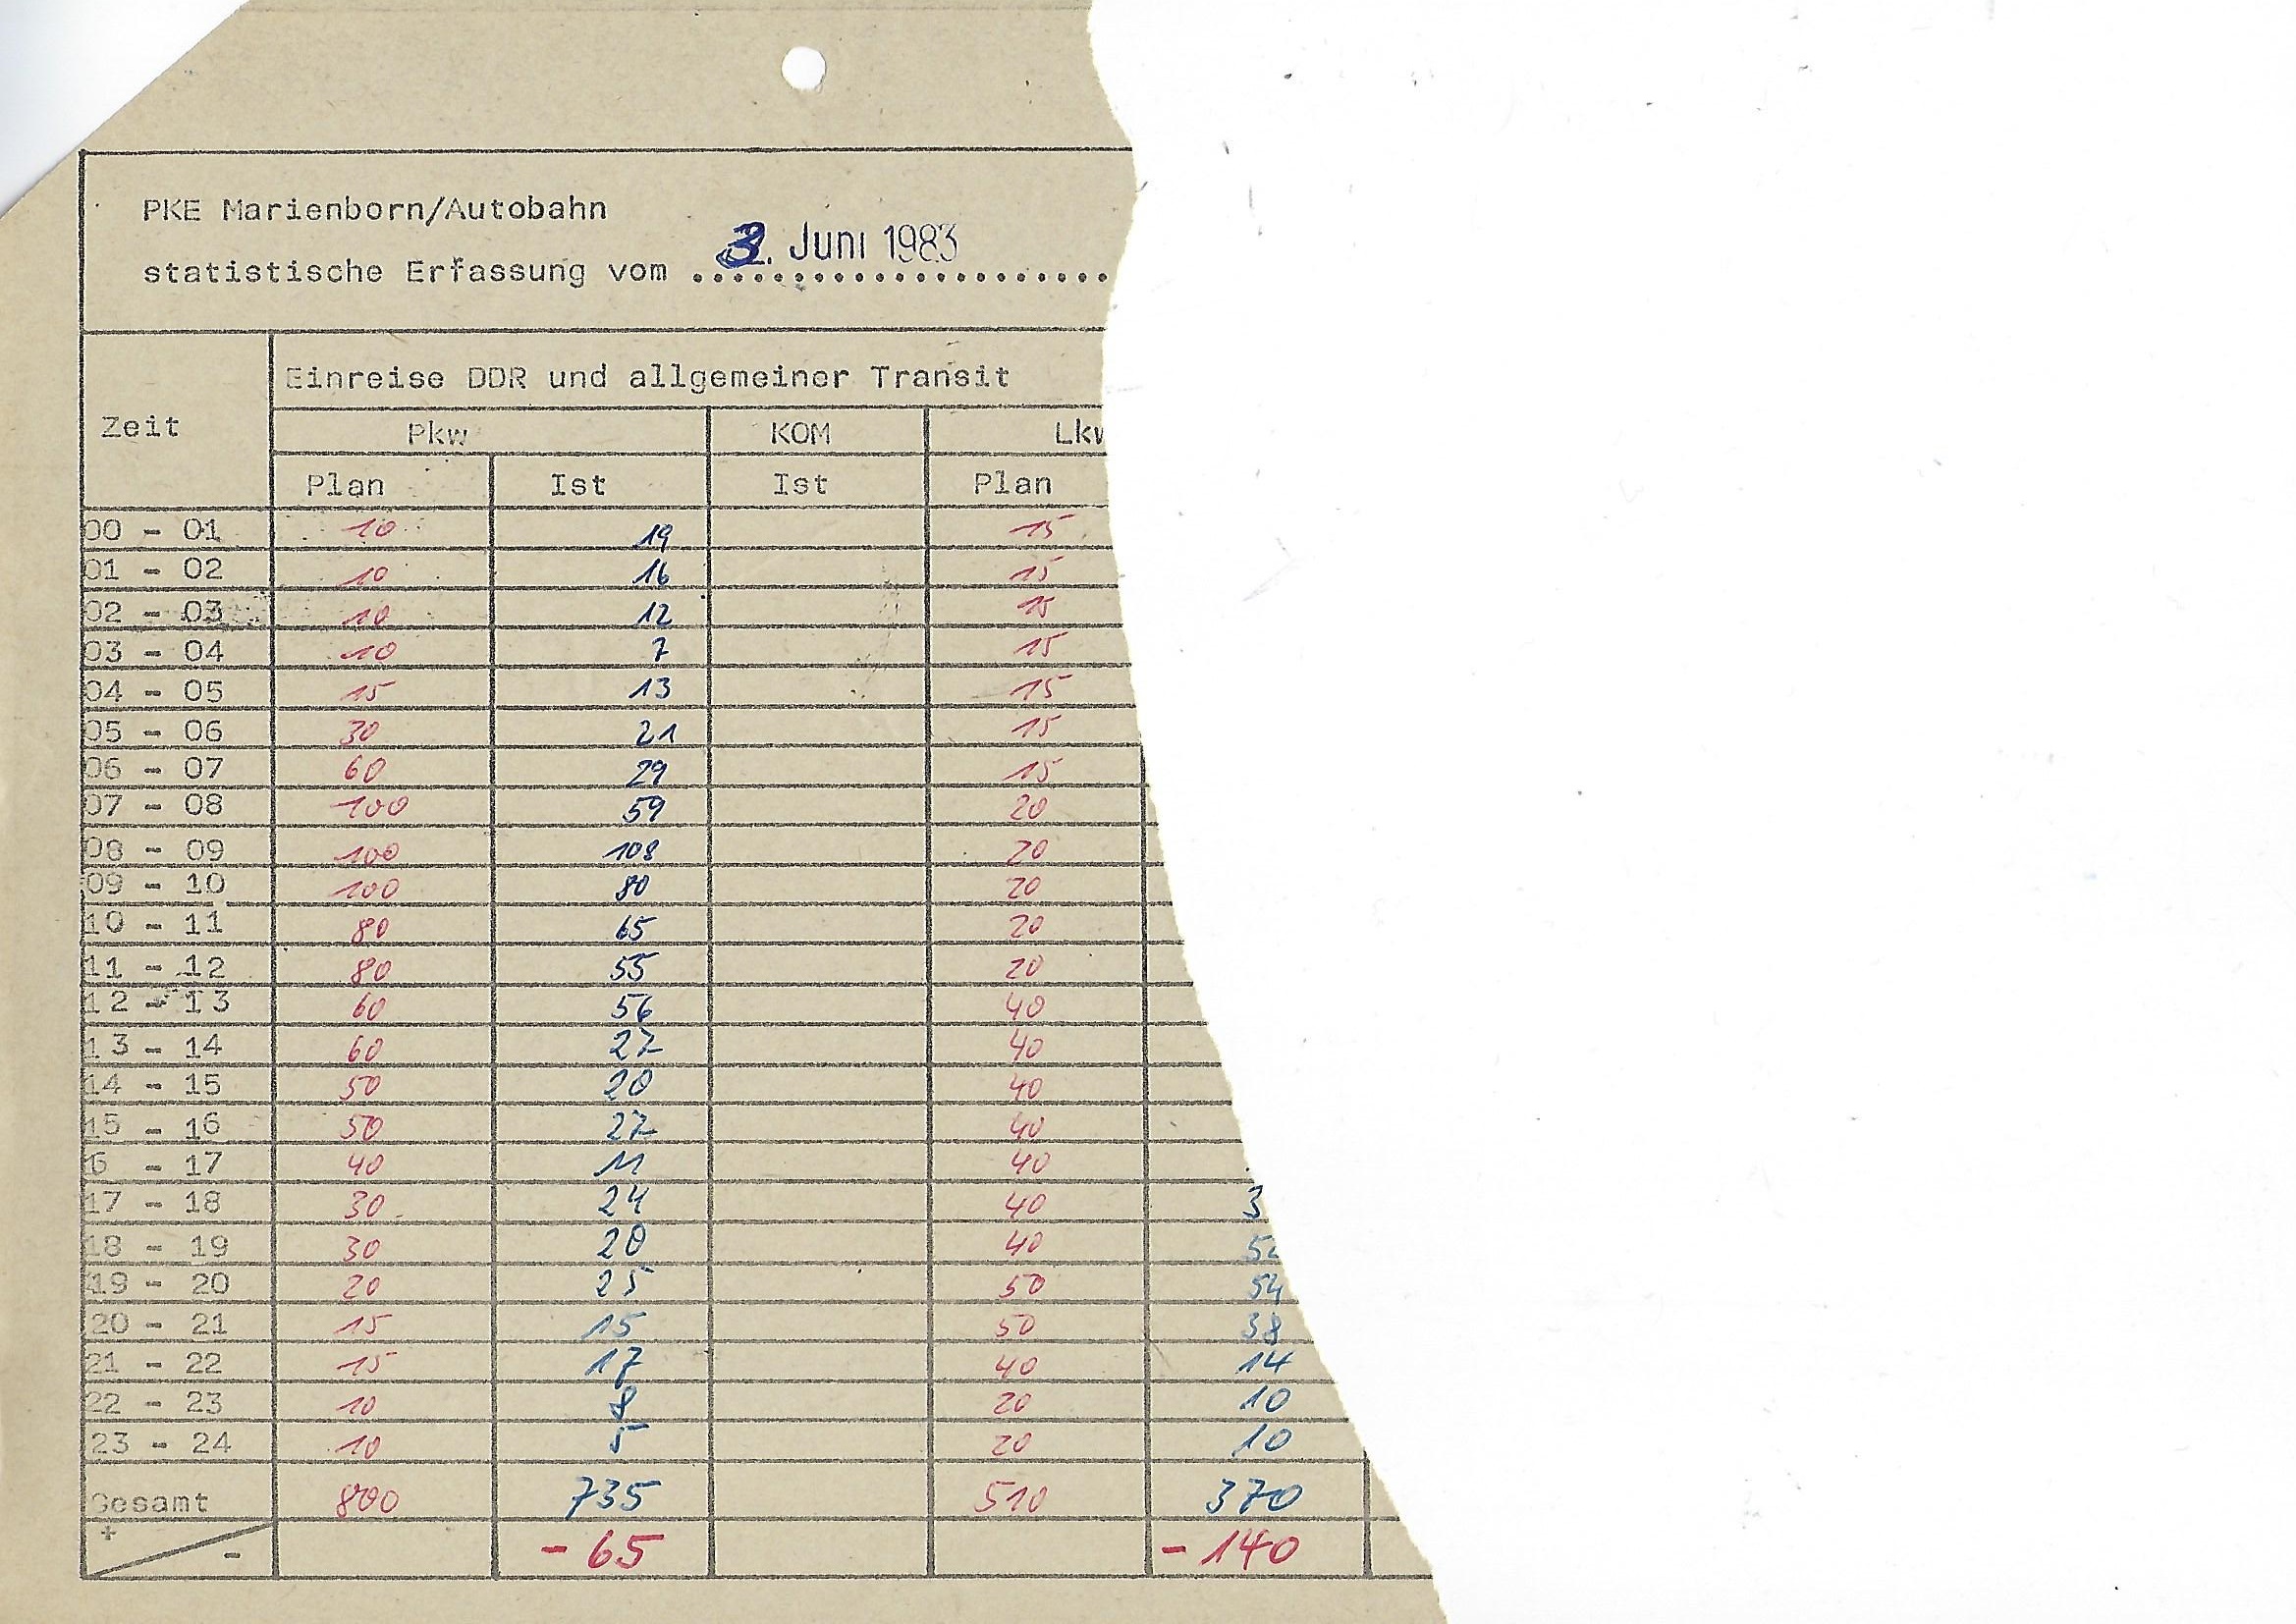 PKE Marienborn/Autobahn
statistische Erfassung vom 3. Juni 1983
Einreise DDR und allgemeiner Transit
Zeit
Pkw KOM Lkw
Plan Ist Ist Plan
00 - 01 10 19 15
01 - 02 10 16 15
02 - 03 10 12 15
03 - 04 10 7 15
04 - 05 15 13 15
05 - 06 30 21 15
06 - 07 60 29 15
07 - 08 100 59 20
08 - 09 100 108 20
09 - 10 100 80 20
10 - 11 80 65 20
11 - 12 80 55 20
12 - 13 60 56 40
13 - 14 60 27 40
14 - 15 50 20 40
15 - 16 50 27 40
6 - 17 40 11 40
17 - 18 30 24 40 3
18 - 19 30 20 40
19 - 20 20 25 50 54
20 - 21 15 15 50 38
21 - 22 15 17 40 14
22 - 23 10 8 20 10
23 - 24 10 5 20 10
Gesamt 800 735 510 370
+ - - 65 - 140